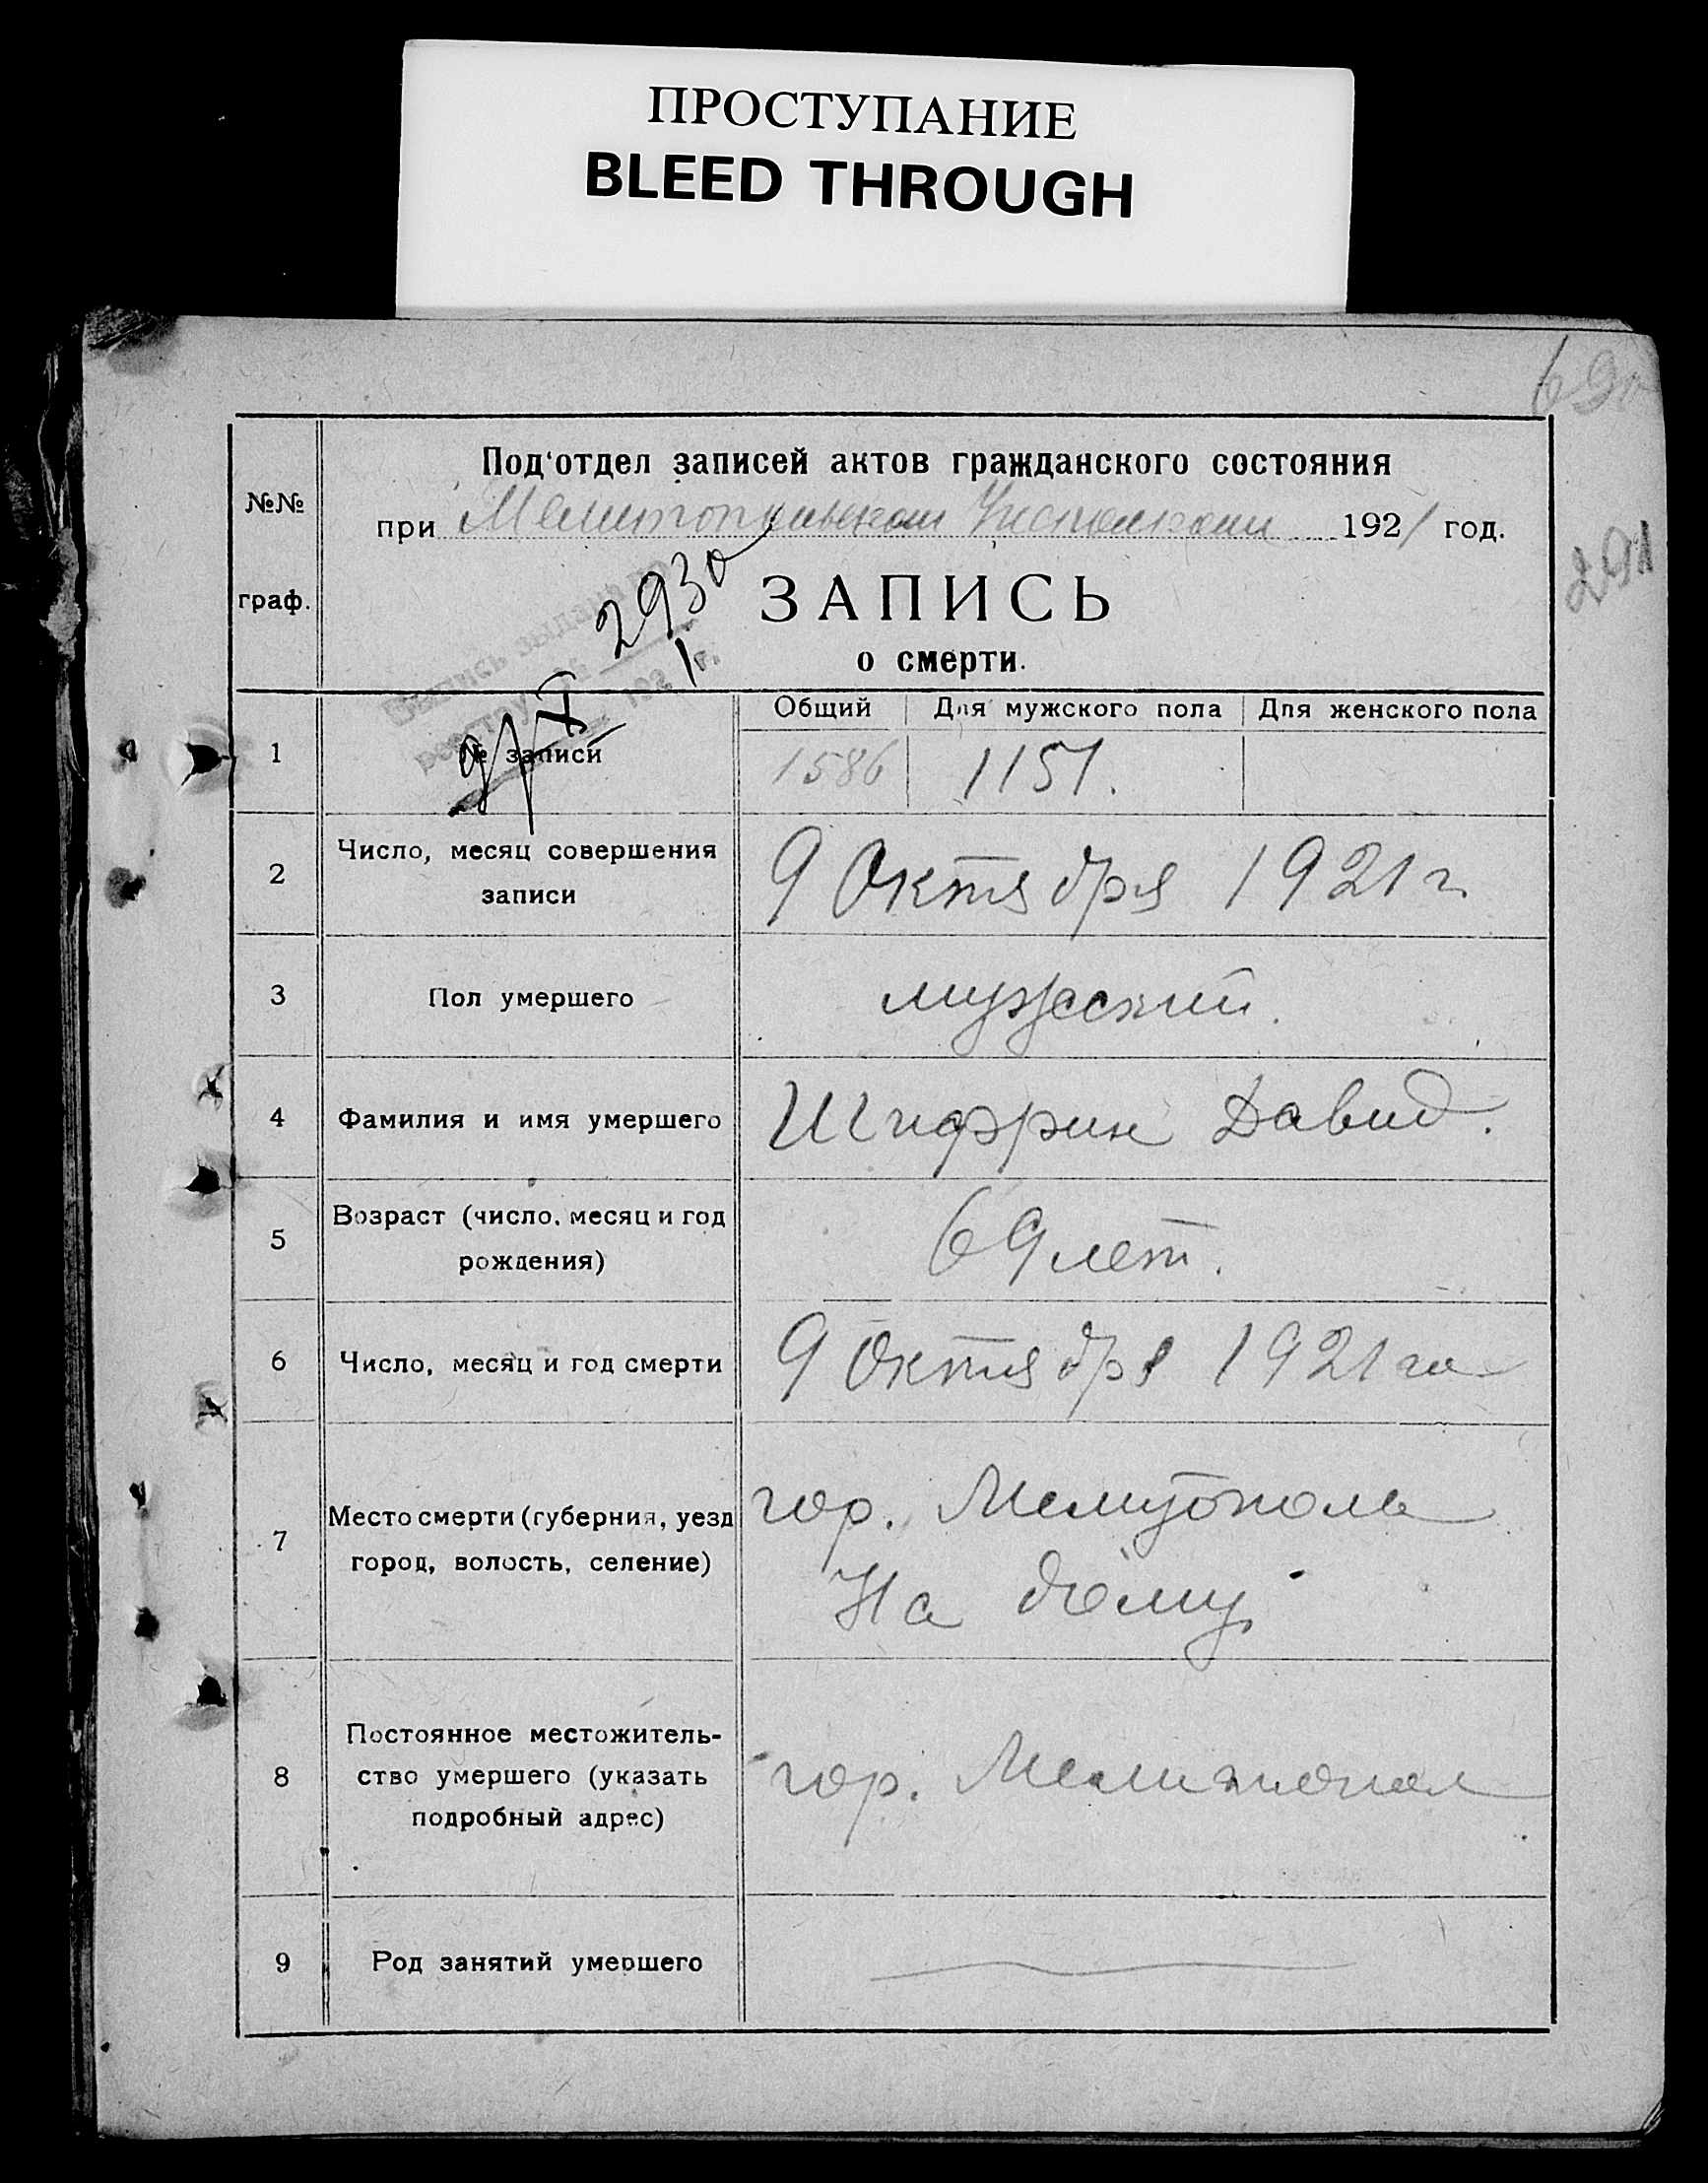 ПРОСТУПАНИЕ
BLEED THROUGH
69
291
№№
граф.
Под‘отдел записей актов гражданского состояния
при Мелитопольском Исполкоми 1921 год.
ЗАПИСЬ
о смерти.
Выпись выдана по
реестру за 2930
9/X 1921 г.
Общий Для мужского пола Для женского пола
1 № записи 1586 1151.
2 Число, месяц совершения
записи
9 Октября 1921 г.
3 Пол умершего мужеский.
4 Фамилия и имя умершего Шифрин Давид.
5 Возраст (число, месяц и год
рождения)
69 лет.
6 Число, месяц и год смерти 9 Октября 1921 го
7 Место смерти (губерния, уезд
город, волость, селение)
гор. Мелитополь
На дому
8 Постоянное местожитель-
ство умершего (указать
подробный адрес)
гор. Мелитопол
9 Род занятий умершего